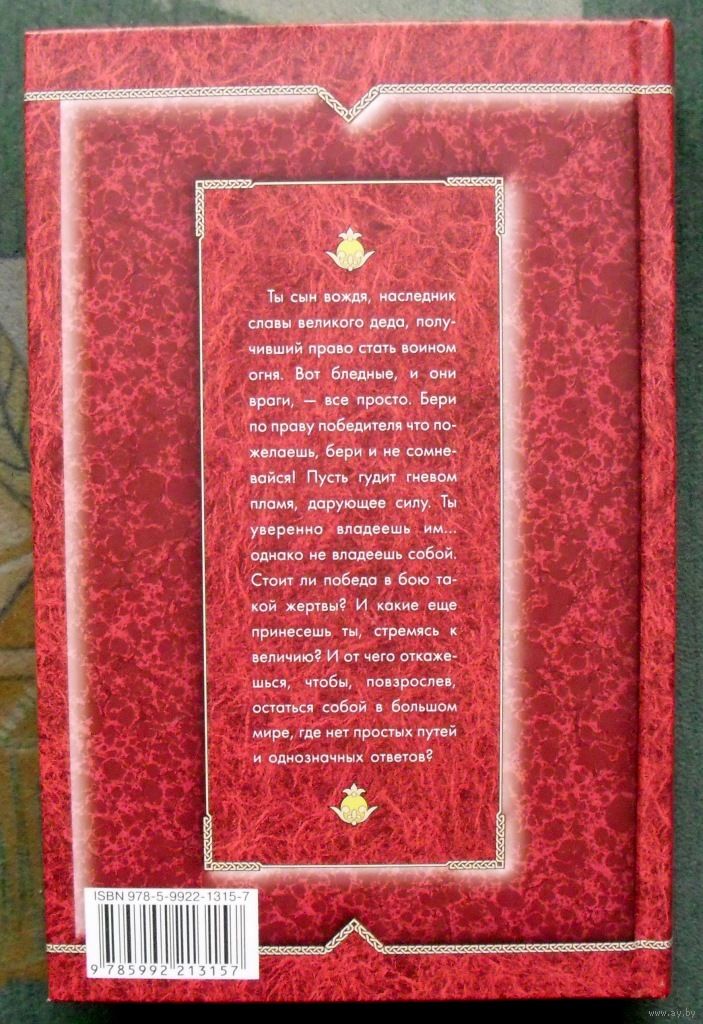 Ты сын вождя, наследник
славы великого деда, полу-
чивший право стать воином
огня. Вот бледные, и они
враги, — все просто. Бери
по праву победителя что по-
желаешь, бери и не сомне-
вайся! Пусть гудит гневом
пламя, дарующее силу. Ты
уверенно владеешь им...
однако не владеешь собой.
Стоит ли победа в бою та-
кой жертвы? И какие еще
принесешь ты, стремясь к
величию? И от чего откаже-
шься, чтобы, повзрослев,
остаться собой в большом
мире, где нет простых путей
и однозначных ответов?
ISBN 978-5-9922-1315-7
9 785992 213157
www.ay.by